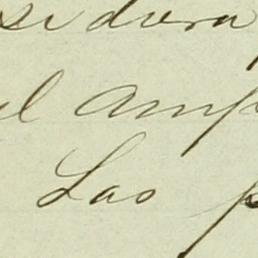 si diera
el amp
Las p